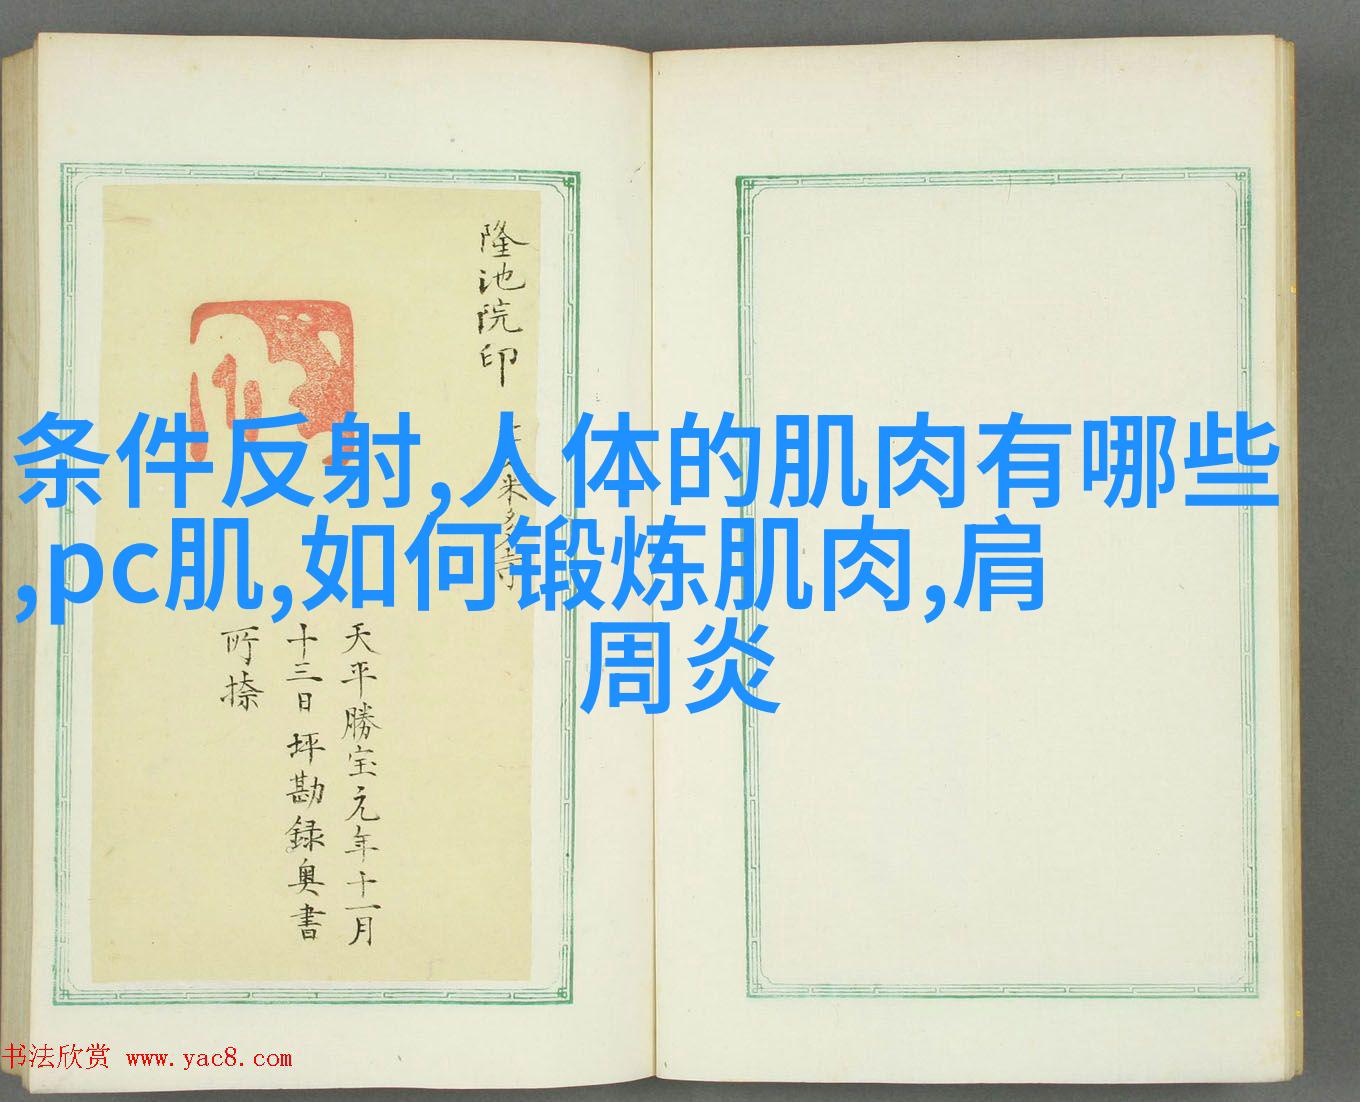 条件反射,人体的肌肉有哪些
,pc肌,如何锻炼肌肉,肩
周炎
隆池院印
米多寺
天平勝宝元年十一月
十三日坪勘録奥書
所捺
书法欣赏 www.yac8.com